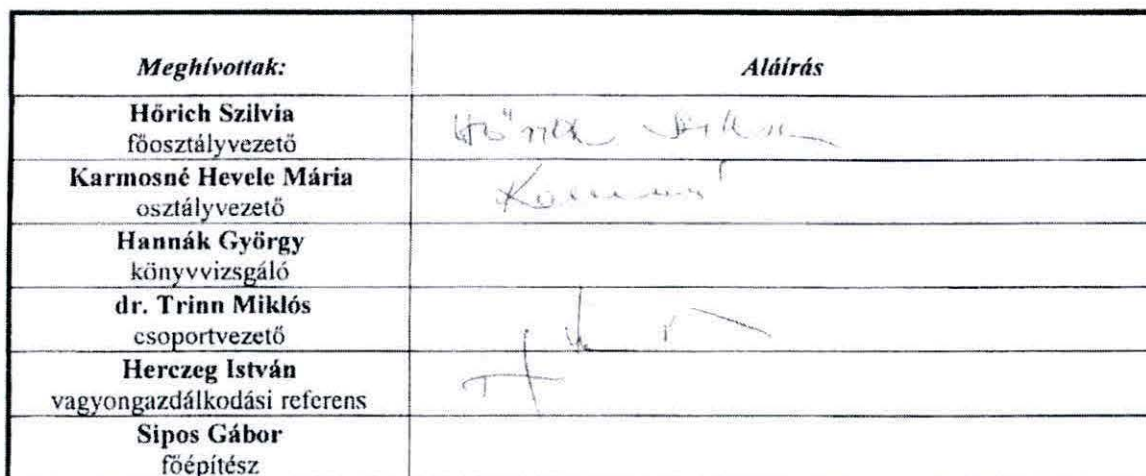 Meghívottak: Aláírás
Hőrich Szilvia
főosztályvezető
Hőrich Szilvia
Karmosné Hevele Mária
osztályvezető
Hannák György
könyvvizsgáló
dr. Trinn Miklós
csoportvezető
Herczeg István
vagyongazdálkodási referens
Sipos Gábor
főépítész